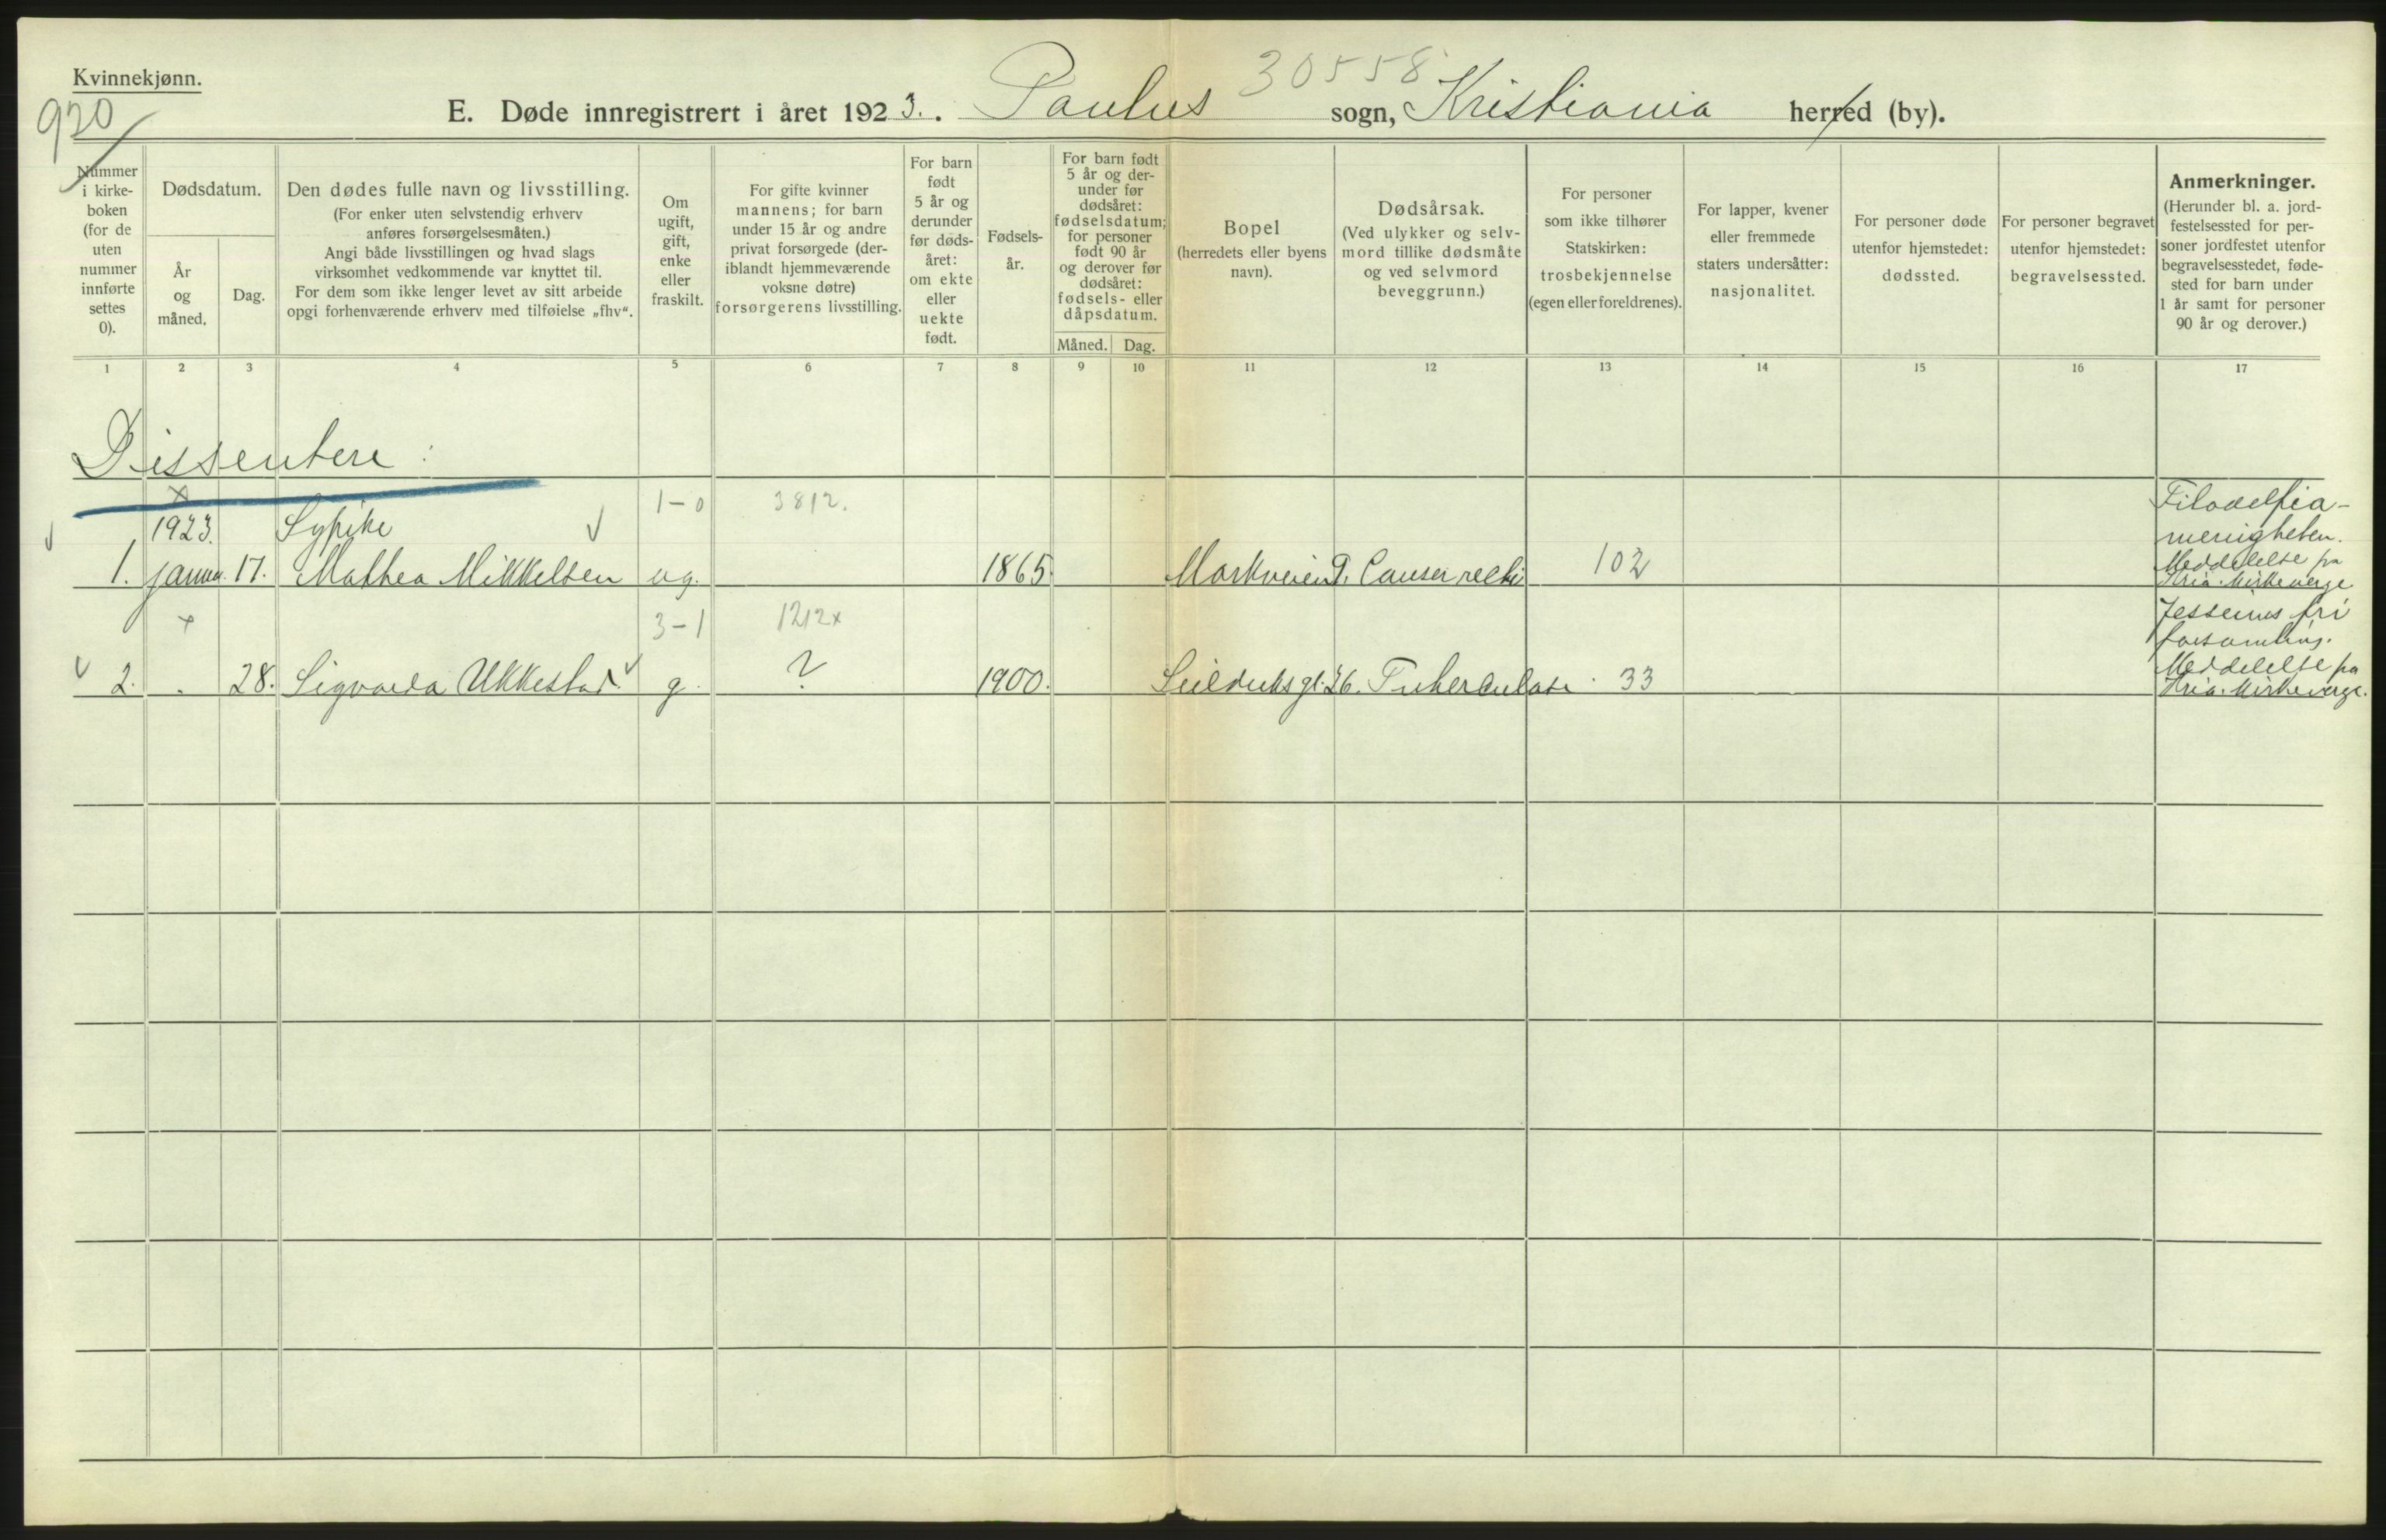 Kvinnekjønn.
920
30558
E. Døde innregistrert i året 1923. Paulus sogn, Kristiania herred (by).
Nummer
i kirke-
boken
(for de
uten
nummer
innførte
settes
0).
Dødsdatum.
År
og
måned.
Dag.
Den dødes fulle navn og livsstilling.
(For enker uten selvstendig erhverv
anføres forsørgelsesmåten.)
Angi både livsstillingen og hvad slags
virksomhet vedkommende var knyttet til.
For dem som ikke lenger levet av sitt arbeide
opgi forhenværende erhverv med tilføielse „fhv“.
Om
ugift,
gift,
enke
eller
fraskilt.
For gifte kvinner
mannens; for barn
under 15 år og andre
privat forsørgede (der-
iblandt hjemmeværende
voksne døtre)
forsørgerens livsstilling.
For barn
født
5 år og
derunder
før døds-
året:
om ekte
eller
uekte
født.
Fødsels-
år.
For barn født
5 år og der-
under før
dødsåret:
fødselsdatum;
for personer
født 90 år
og derover før
dødsåret:
fødsels- eller
dåpsdatum.
Måned. Dag.
Bopel
(herredets eller byens
navn).
Dødsårsak.
(Ved ulykker og selv-
mord tillike dødsmåte
og ved selvmord
beveggrunn.)
For personer
som ikke tilhører
Statskirken:
trosbekjennelse
(egen eller foreldrenes).
For lapper, kvener
eller fremmede
staters undersåtter:
nasjonalitet.
For personer døde
utenfor hjemstedet:
dødssted.
For personer begravet
utenfor hjemstedet:
begravelsessted.
Anmerkninger.
(Herunder bl. a. jord-
festelsessted for per-
soner jordfestet utenfor
begravelsesstedet, føde-
sted for barn under
1 år samt for personer
90 år og derover.)
1 2 3 4 5 6 7 8 9 10 11 12 13 14 15 16 17
Dissentere:
x 1-0 3812.
1923. Sypike
1. januar 17. Mathea Mikkelsen ug. 1865 Markveien Cancer recti 102
Filadelfia-
menigheten.
Meddelelse fra
Kria. kirkeverge
x 3-1 1212x
2. 28. Sigvarda Ukkestad g. ? 1900. Seilduksgt. 26. Tuberculose 33
Jesseinus fri
forsamling.
Meddelelse fra
Kria. kirkeverge.